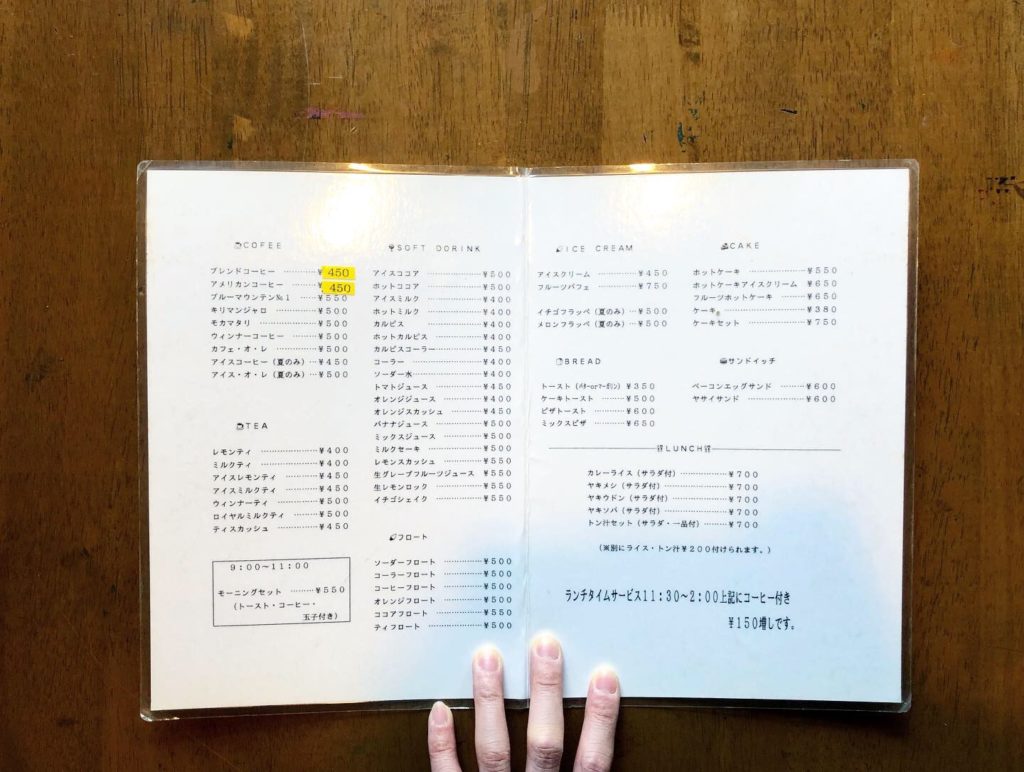 COFEE
ブレンドコーヒー ………¥ 450
アメリカンコーヒー ……¥ 450
ブルーマウンテン№1 ……¥550
キリマンジャロ ………¥500
モカマタリ ………¥500
ウィンナーコーヒー ……¥500
カフェ・オ・レ ………¥500
アイスコーヒー(夏のみ)…¥450
アイス・オ・レ(夏のみ)…¥500
TEA
レモンティ ………¥400
ミルクティ ………¥400
アイスレモンティ ………¥450
アイスミルクティ ………¥450
ウィンナーティ ………¥500
ロイヤルミルクティ ……¥500
ティスカッシュ ………¥450
9:00～11:00
モーニングセット ………¥550
(トースト・コーヒー・
玉子付き)
SOFT DORINK
アイスココア ………¥500
ホットココア ………¥500
アイスミルク ………¥400
ホットミルク ………¥400
カルピス ………¥400
ホットカルピス ………¥400
カルピスコーラー ………¥450
コーラー ………¥400
ソーダー水 ………¥400
トマトジュース ………¥450
オレンジジュース ………¥400
オレンジスカッシュ ……¥450
バナナジュース ………¥500
ミックスジュース ………¥500
ミルクセーキ ………¥500
レモンスカッシュ ………¥550
生グレープフルーツジュース ¥550
生レモンロック ………¥550
イチゴシェイク ………¥550
フロート
ソーダーフロート ………¥500
コーラーフロート ………¥500
コーヒーフロート ………¥500
オレンジフロート ………¥500
ココアフロート ………¥550
ティフロート ………¥500
ICE CREAM
アイスクリーム ………¥450
フルーツパフェ ………¥750
イチゴフラッペ(夏のみ)…¥500
メロンフラッペ(夏のみ)…¥500
BREAD
トースト(バターorマーガリン) ¥350
ケーキトースト ………¥500
ピザトースト ………¥600
ミックスピザ ………¥650
CAKE
ホットケーキ ………¥550
ホットケーキアイスクリーム ¥650
フルーツホットケーキ ……¥650
ケーキ ………¥380
ケーキセット ………¥750
サンドイッチ
ベーコンエッグサンド ……¥600
ヤサイサンド ………¥600
LUNCH
カレーライス(サラダ付)………¥700
ヤキメシ(サラダ付) ………¥700
ヤキウドン(サラダ付) ………¥700
ヤキソバ(サラダ付) ………¥700
トン汁セット(サラダ・一品付)……¥700
(※別にライス・トン汁¥200付けられます。)
ランチタイムサービス11:30～2:00上記にコーヒー付き
¥150増しです。